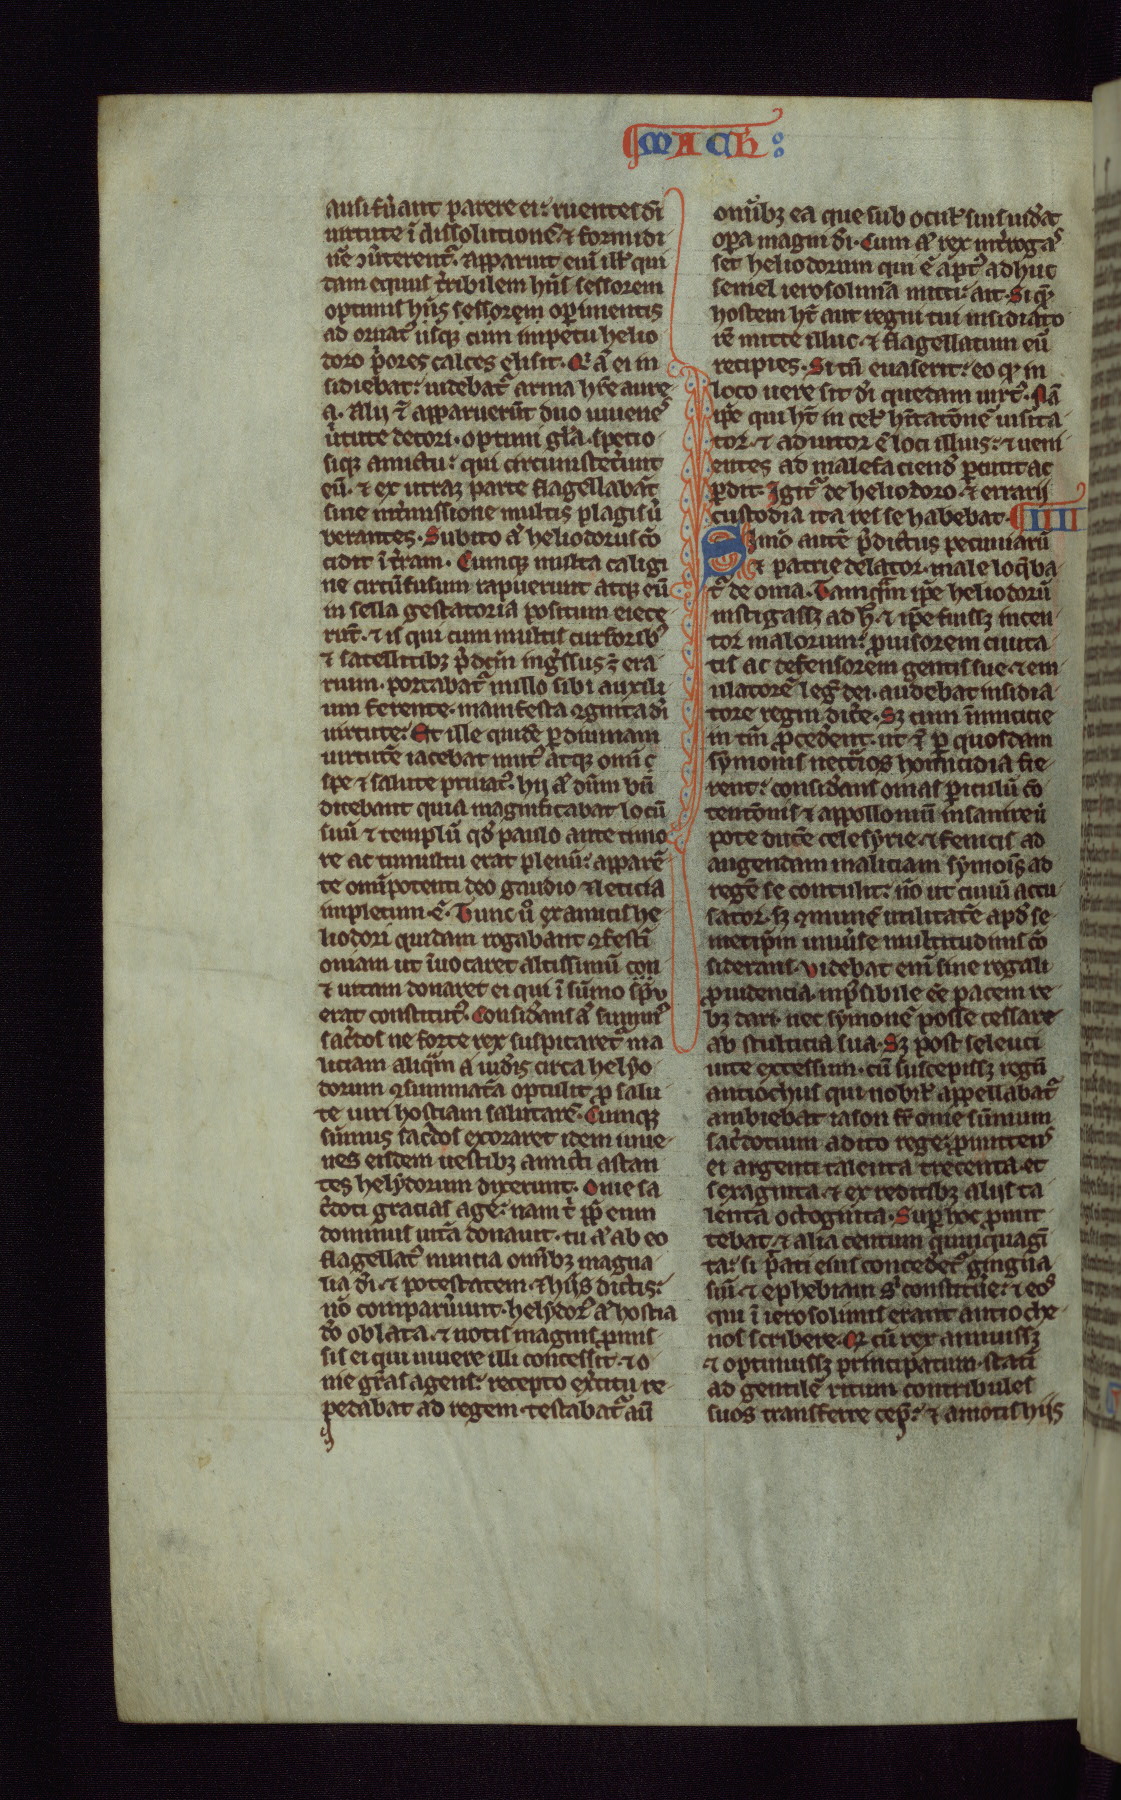 MACH:
ausi fu̅ant parere ei: ruentes dī
uirtute ī dissolutionē ⁊ formidi
nē ꝯuerterent᷑. apparuit eni᷑ ill᷑ qui
dam equus t̓ribilem hn̅s sessorem
optimis hn̅s sessorem operimentis
ad ornat᷑ isqꝫ cum impetu helio
doro p̓ores calces elisit. Q̄i a᷑ ei in
sidebat: uidebat᷑ arma hr̅e aure
a. Alij ⁊ apparuerūt duo iuuene᷒
u̓tute decori. optimi gl̅a. specio
siqꝫ amictu: qui circumstet̓unt
eū. ⁊ ex utraqꝫ parte flagellabāt
sine int̓missione multis plagis ū
berantes. Subito a᷑ heliodorus cō
cidit ī t̓ram. Cumqꝫ multa caligi
ne circūfusum rapuerunt atqꝫ eū
in sella gestatoria positum eiece
rūt. ⁊ is qui cum multis cursorib᷒
⁊ satellitibꝫ p̓dc̅m ing̓ssus ē era
rium. portabat᷑ nullo sibi auxili
um ferente. manifesta ꝯgnita dī
uirtute: Et ille quidē ꝑ diuinam
uirtutē iacebat mut᷒ atqꝫ om̅i
spe ⁊ salute priuat᷒. hij a᷑ dn̅m bn̅
dicebant quia magnificabat locū
suū ⁊ templū qd̓ paulo ante timo
re ac tumultu erat plenū: apparē
te om̅ipotenti deo gaudio ⁊ leticia
impletum ē. Tunc u̓o ex amicis he
liodori quidam rogabant ꝯfestī
oniam ut īuocaret altissimū con
⁊ uitam donaret ei qui ī sūmo sp̅u
erat constitut᷒. Considerans a᷑ summ᷒
sac̓dos ne forte rex suspicaret᷑ ma
liciam aliq̅m a iudeis circa helyo
dorum ꝯsummatā optulit ꝓ salu
te uiri hostiam salutarē. Cumqꝫ
sūmus sac̓dos exoraret idem iuue
nes eisdem uestibꝫ amicti astan
tes helyodorum dixerunt. Onie sa
c̓doti gracias age: nam ꝓpter eum
dominus uitā donauit. tu a᷑ ab eo
flagellat᷒ nuntia om̅ibꝫ magna
lia dī. ⁊ potestatem. ⁊ hijs dictis:
nō comparuerunt. helyodor᷒ a᷑ hostia
dō oblata. ⁊ uotis magnis ꝓmis
sis ei qui uiuere illi concessit. ⁊ o
nie grās agens: recepto ex̓citu re
pedabat ad regem. testabat᷑ aū
om̅ibꝫ ea que sub ocul᷑ suis uiderat
opera magni dī. Cum a᷑ rex int̓roga᷒
set heliodorum qui ē apt᷒ adhuc
semel ierosolimā mitti: ait. Si q̄s
hostem hēs aut regni tui insidiato
rē mitte illuc. ⁊ flagellatum eū
recipies. Si tn̄ euaserit: eo qd̓ in
loco uere sit dī quedam uirt᷒. Nā
ip̅e qui ht̅ in cel᷑ hītationē uisita
tor. ⁊ adiutor ē loci illius: ⁊ ueni
entes ad malefaciend᷑ percutit ac
perdit. Igit᷑ de heliodoro. ⁊ erarij
custodia ita res se habebat. IIII
Simō autē p̓dictus pecuniarū
⁊ patrie delator. male loq̅ba
t᷑ de onia. Tamq̅m ip̅e heliodorū
instigassꝫ ad h̅. ⁊ ip̅e fuissꝫ incen
tor malorum: prouisorem ciuita
tis ac defensorem gentis sue. ⁊ em
ulatorē leg᷑ dei. audebat insidia
tore regni dic̓e. Sꝫ cum īimicicie
in tm̄ ꝓcederent. ut ⁊ ꝑ quosdam
symonis nec̄ios homicidia fie
rent: considerans onias ꝑiculū cō
tentōnis ⁊ appollonium insanire ut
pote ducē celesyrie. ⁊ fenicis ad
augendam maliciam symōis ad
regē se contulit: nō ut ciuiū accu
sator. sꝫ ꝯmunē utilitatē apd̓ se
metip̅m uniuerse multitudinis cō
siderans. videbat eni᷑ sine regali
ꝓuidencia. inposibile ēe pacem re
bꝫ dari. nec symonē posse cessare
ab stulticia sua. Sꝫ post seleuci
uite excessum. cū suscepissꝫ regnū
antiochus qui nobil᷑ appellabat᷑
ambiebat iason fr̄ onie sūmum
sac̓dotium adito rege. ꝓmittens
ei argenti talenta trecenta. et
sexaginta. ⁊ ex reditibꝫ alijs ta
lenta octoginta. Super hoc ꝓmit
tebat. ⁊ alia centum quinquagī
ta: si p̓ati eius conceder̄et᷑ gingna
siū. ⁊ ephebiam s̓ constitu̓e: ⁊ eos
qui ī ierosolimis erant antioche
nos scribere. Qd̓ cū rex annuissꝫ
⁊ optinuissꝫ principatum. statī
ad gentilē ritum contribules
suos transferre cep̅: ⁊ amotis hijs